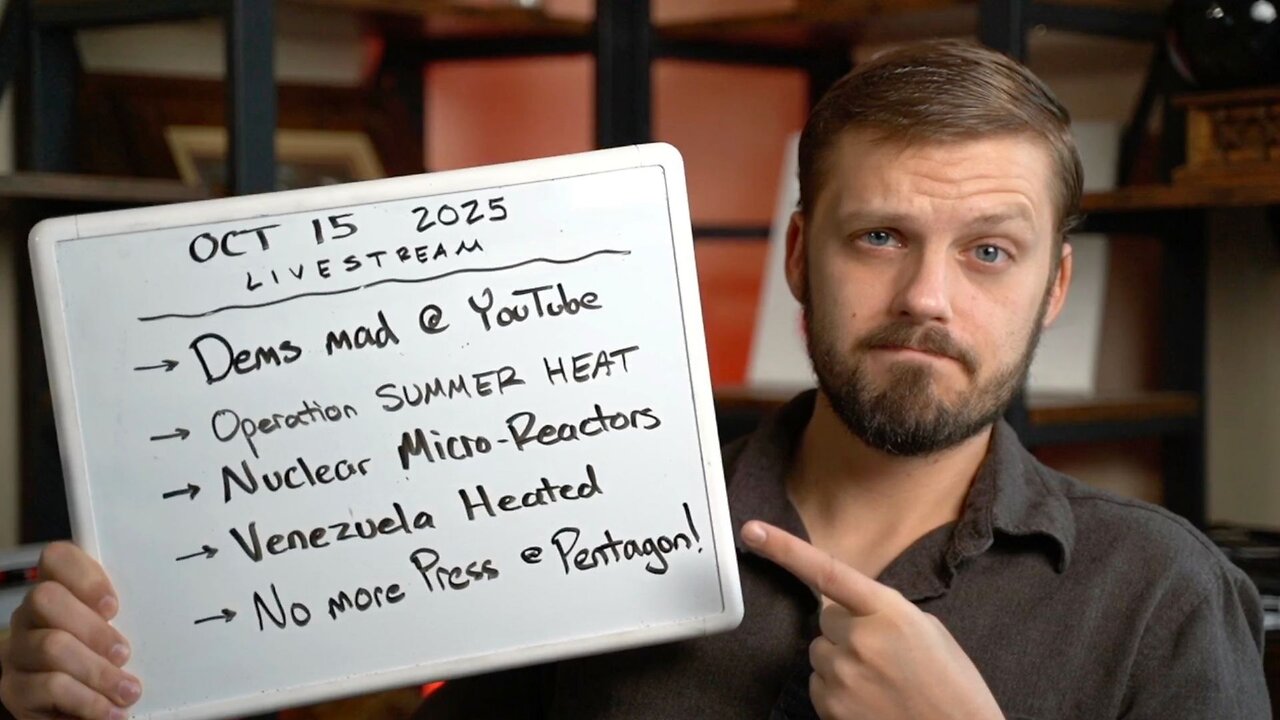 OCT 15 2025
LIVESTREAM
→ Dems mad @ YouTube
→ Operation SUMMER HEAT
→ Nuclear Micro-Reactors
→ Venezuela Heated
→ No more Press @ Pentagon!